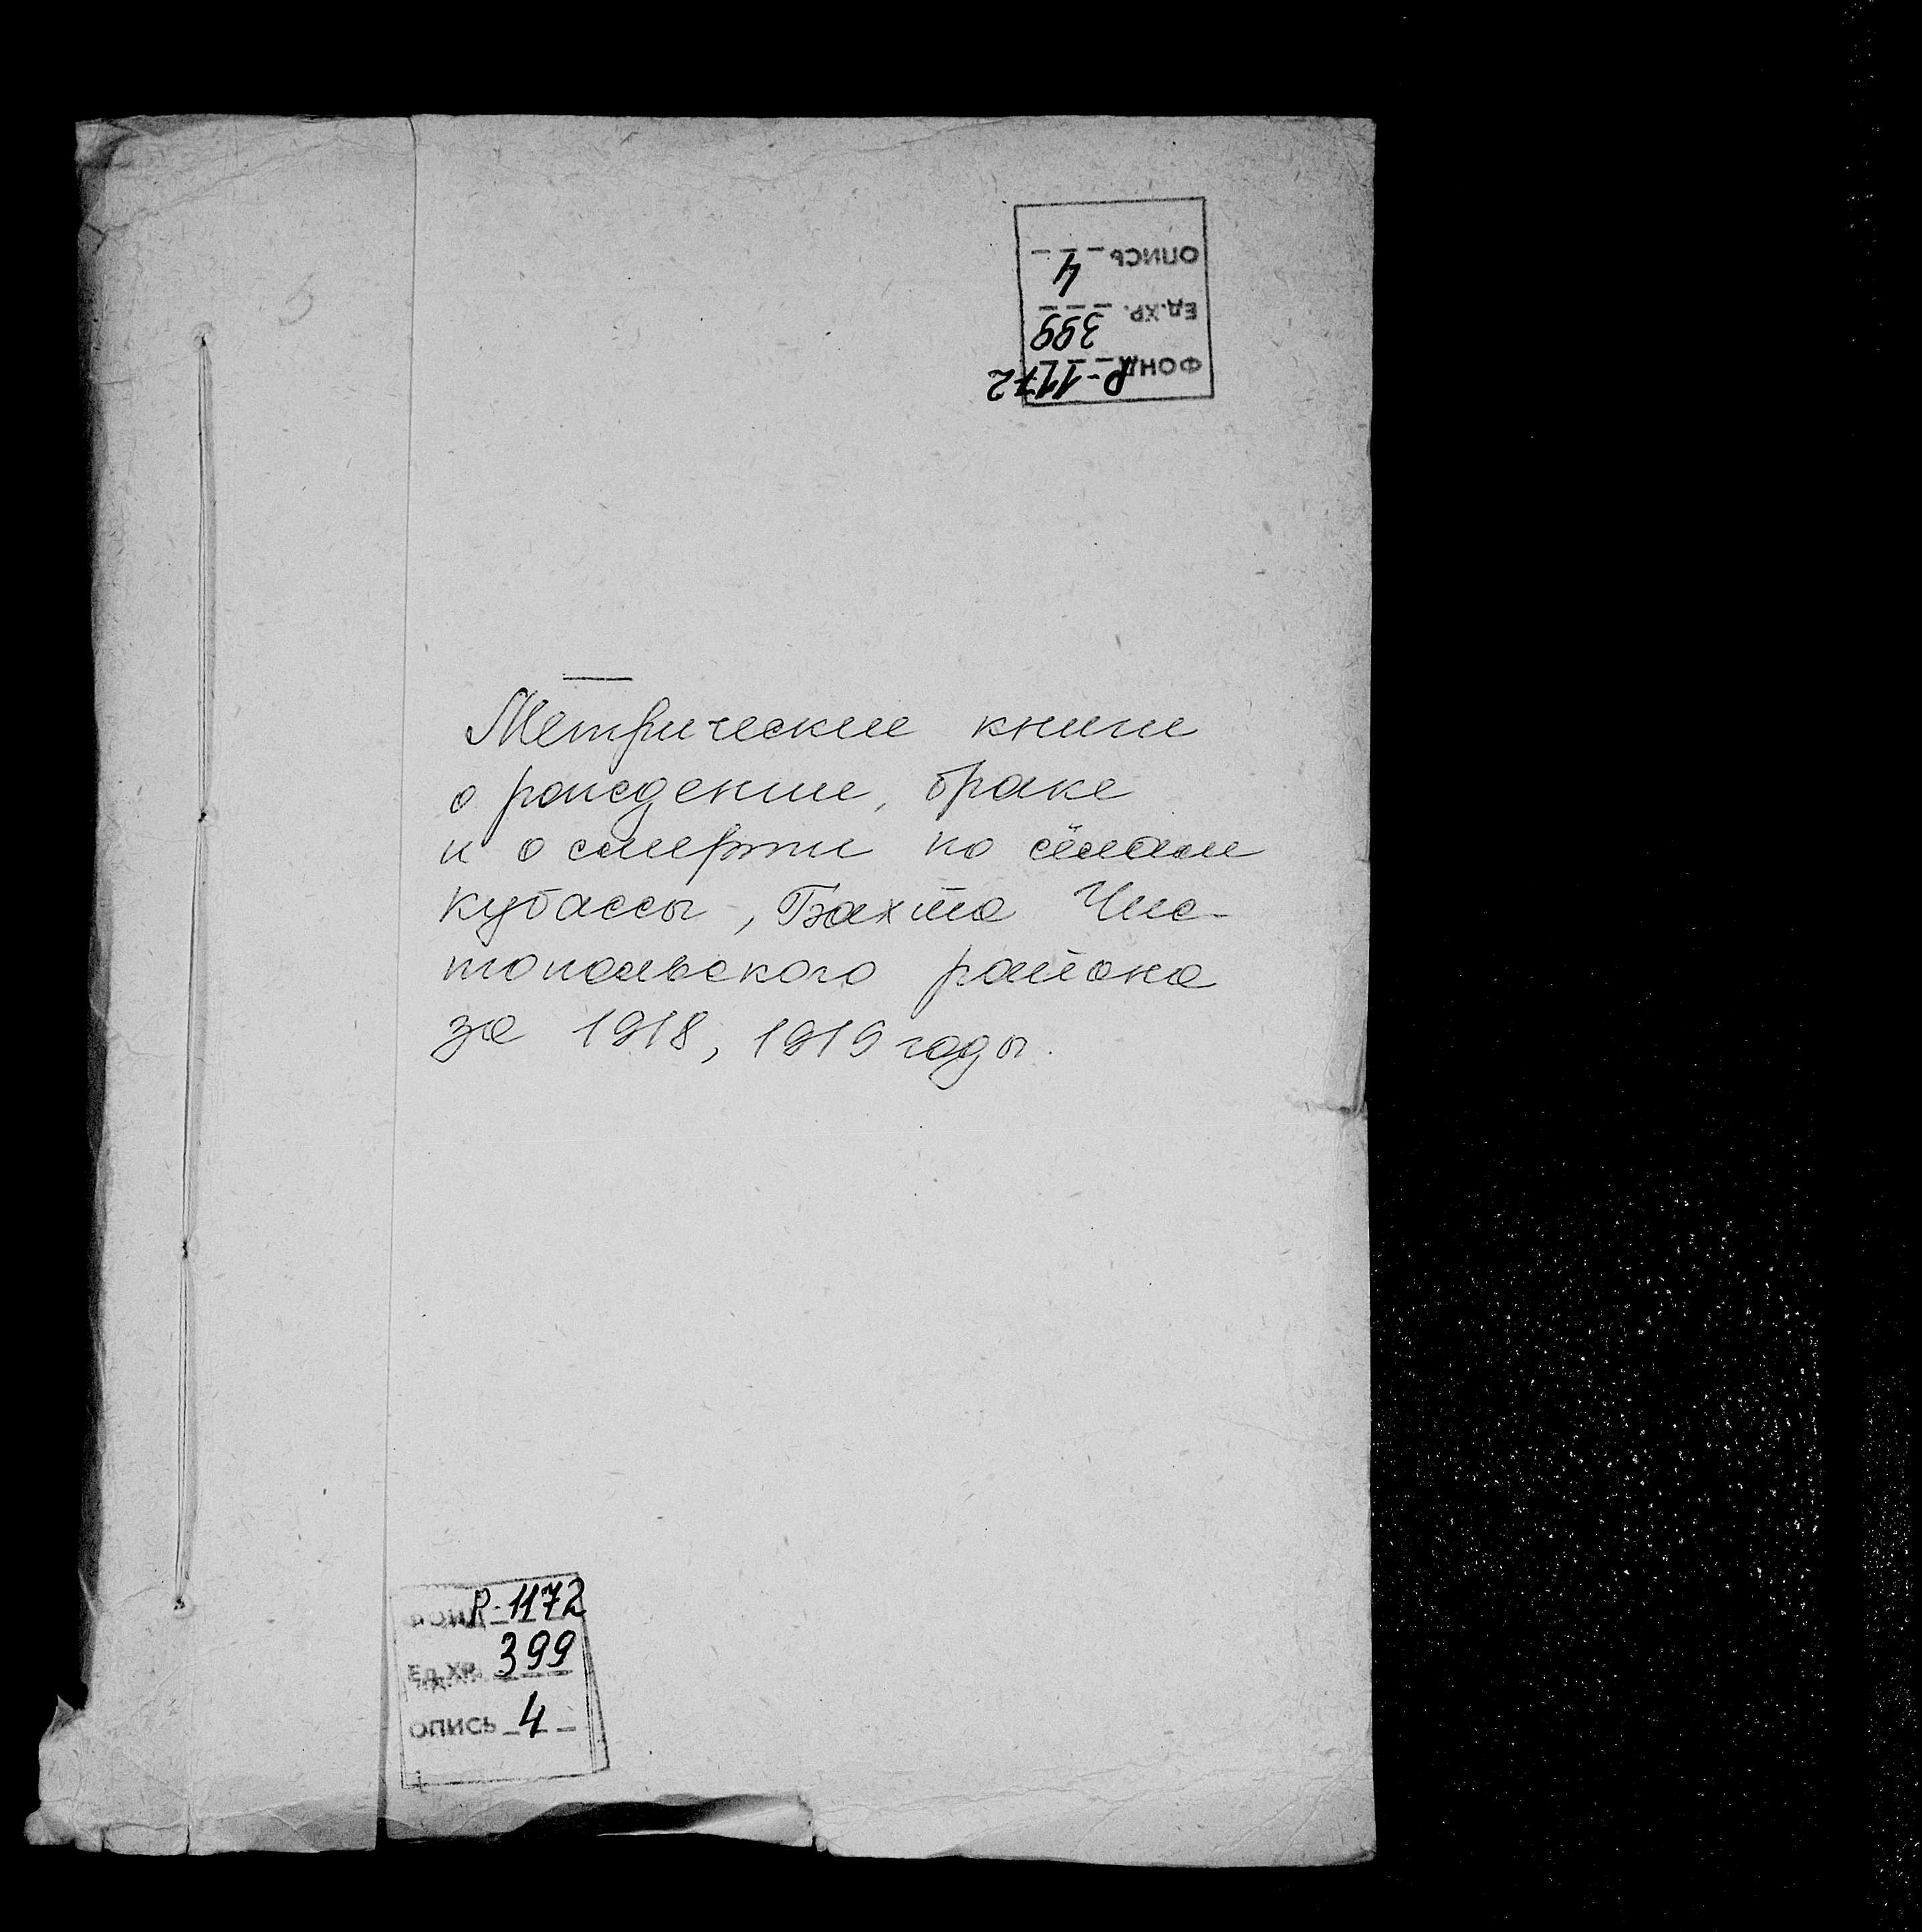 ОПИСЬ 4
Ед.ХР. 399
ФОНД Р-1172
Метрические книги
о рождении, браке
и о смерти по сёлам
Кубассы, Бахта Чис-
топольского района
за 1918, 1919 годы.
ФОНД Р-1172
Ед.ХР. 399
ОПИСЬ 4